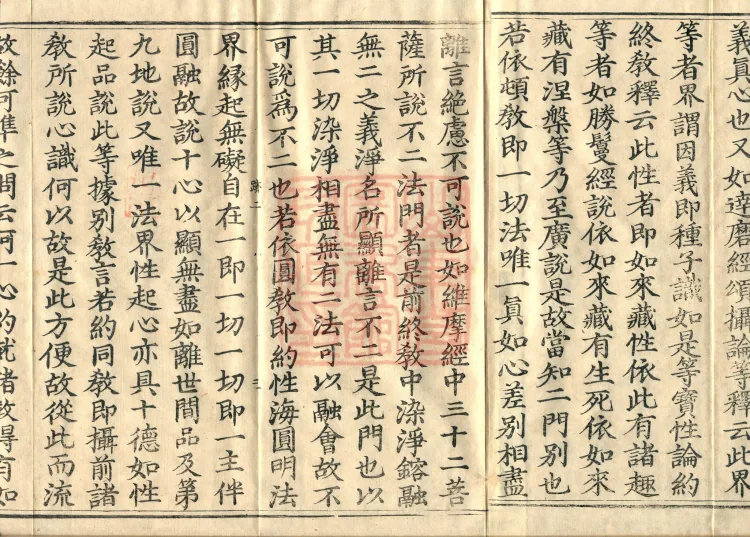 義真心也又如達磨經頌攝論等釋云此界
等者界謂因義即種子識如是等寶性論約
終教釋云此性者即如來藏性依此有諸趣
等者如勝鬘經說依如來藏有生死依如來
藏有涅槃等乃至廣說是故當知二門別也
若依頓教即一切法唯一真如心差別相盡
離言絕慮不可說也如維摩經中三十二菩
薩所說不二法門者是前終教中染淨鎔融
無二之義淨名所顯離言不二是此門也以
其一切染淨相盡無有二法可以融會故不
可說爲不二也若依圓教即約性海圓明法
跡二
三
界緣起無礙自在一即一切一切即一主伴
圓融故說十心以顯無盡如離世間品及第
九地說又唯一法界性起心亦具十德如性
起品說此等據別教言若約同教即攝前諸
教所說心識何以故是此方便故從此而流
故餘可準之問云何一心約就諸教得有如